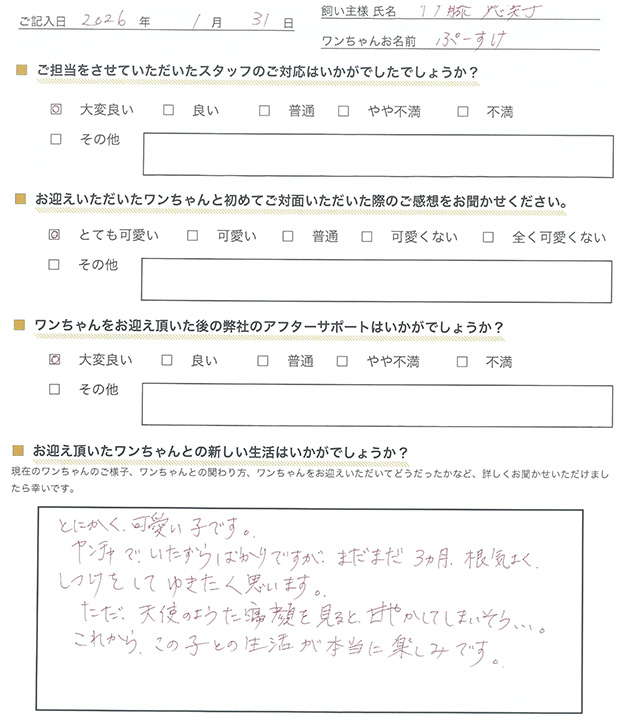 ご記入日 2026 年 1 月 31 日
飼い主様 氏名
ワンちゃんお名前 ぷーすけ
ご担当をさせていただいたスタッフのご対応はいかがでしたでしょうか？
大変良い 良い 普通 やや不満 不満
その他
お迎えいただいたワンちゃんと初めてご対面いただいた際のご感想をお聞かせください。
とても可愛い 可愛い 普通 可愛くない 全く可愛くない
その他
ワンちゃんをお迎え頂いた後の弊社のアフターサポートはいかがでしょうか？
大変良い 良い 普通 やや不満 不満
その他
お迎え頂いたワンちゃんとの新しい生活はいかがでしょうか？
現在のワンちゃんのご様子、ワンちゃんとの関わり方、ワンちゃんをお迎えいただいてどうだったかなど、詳しくお聞かせいただけまし
たら幸いです。
とにかく、可愛い子です。
ヤンチャで、いたずらばかりですが、まだまだ3ヵ月、根気よく、
しつけをしてゆきたく思います。
ただ、天使のような寝顔を見ると、甘やかしてしまいそう…。
これから、この子との生活が本当に楽しみです。